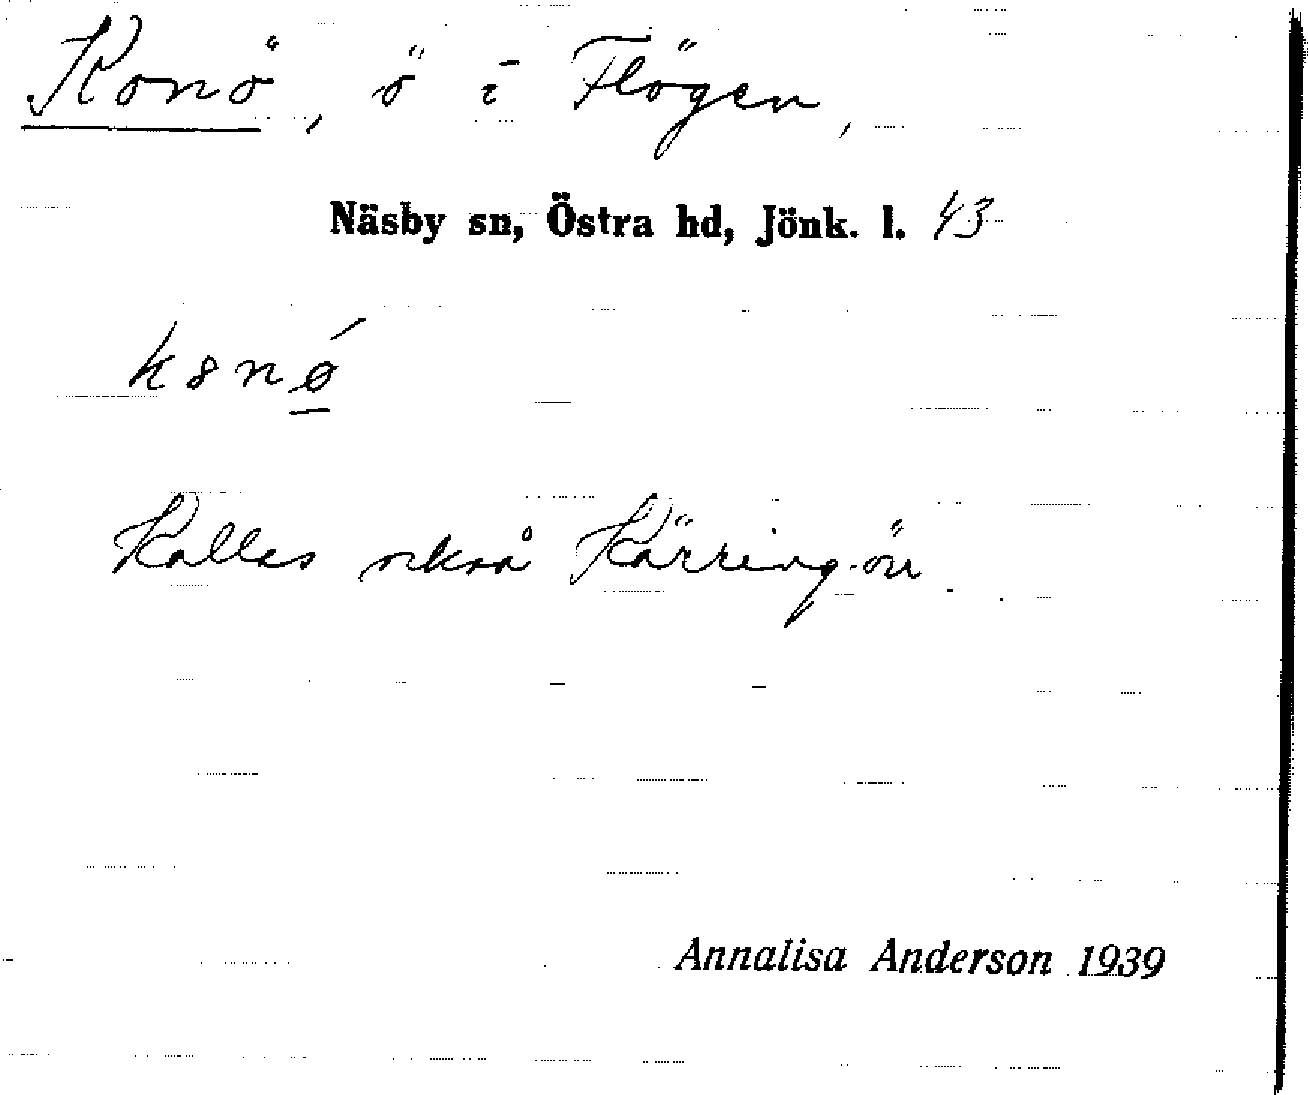 Konö, ö i Flögen,
Näsby sn, Östra hd, Jönk. l. 43
k8nǿ
Kallas också Kärringön
Annalisa Anderson 1939